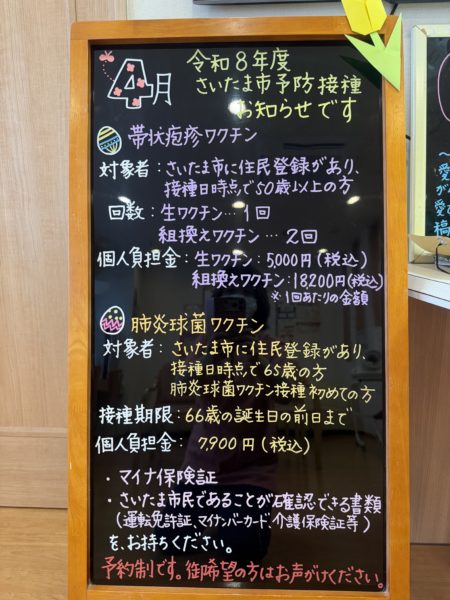 4月
令和8年度
さいたま市予防接種
お知らせです
帯状疱疹ワクチン
対象者：さいたま市に住民登録があり、
接種日時点で50歳以上の方
回数：生ワクチン…1回
組換えワクチン…2回
個人負担金：生ワクチン：5,000円（税込）
組換えワクチン：18200円（税込）
※1回あたりの金額
肺炎球菌ワクチン
対象者：さいたま市に住民登録があり、
接種日時点で65歳の方
肺炎球菌ワクチン接種初めての方
接種期限：66歳の誕生日の前日まで
個人負担金：7,900円（税込）
・マイナ保険証
・さいたま市民であることが確認できる書類
（運転免許証、マイナンバーカード、介護保険証等）
を、お持ちください。
予約制です。御希望の方はお声がけください。